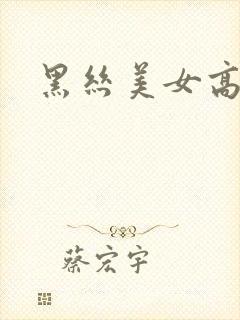 黑絲美女高
蔡宏宇